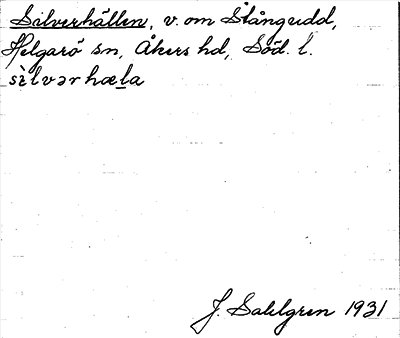 Silverhällen, v. om Stångudd,
Helgarö sn, Åkers hd, Söd. l.
sìlvərhæḻa
J. Sahlgren 1931